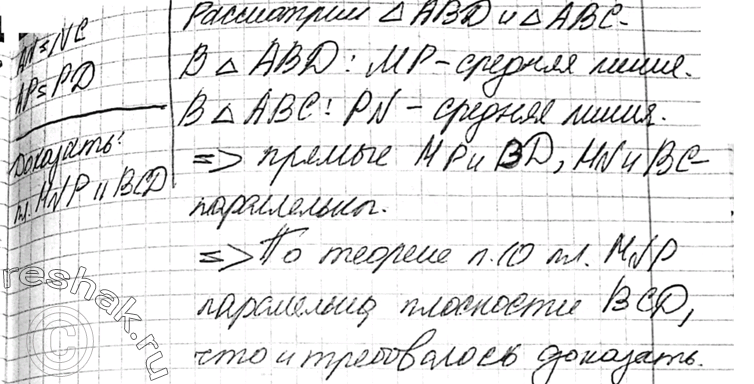 AN=NC
AP=PD
Доказать:
пл. MNP || BCD
Рассмотрим △ABD и △ABC.
В △ABD: MP - средняя линия.
В △ABC: PN - средняя линия.
=> прямые MP и BD, MN и BC -
параллельны.
=> По теореме п.10 пл. MNP
параллельна плоскости BCD,
что и требовалось доказать.
reshak.ru